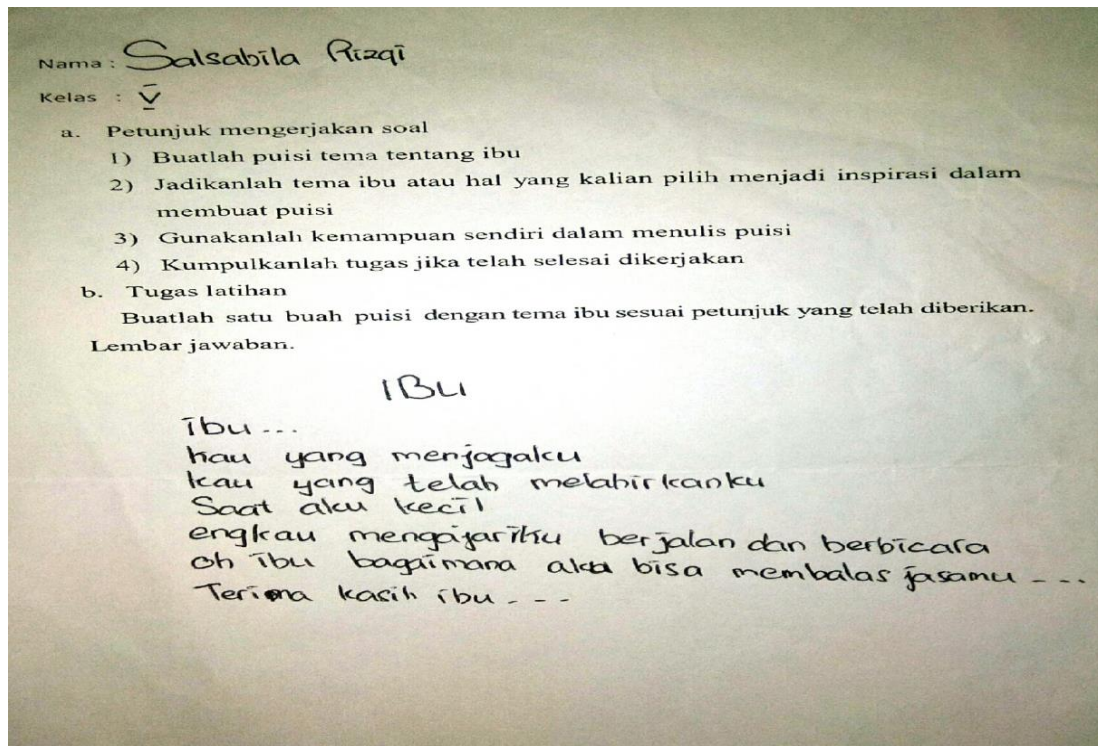 Nama : Salsabila Rizqi
Kelas : V
a. Petunjuk mengerjakan soal
1) Buatlah puisi tema tentang ibu
2) Jadikanlah tema ibu atau hal yang kalian pilih menjadi inspirasi dalam
membuat puisi
3) Gunakanlah kemampuan sendiri dalam menulis puisi
4) Kumpulkanlah tugas jika telah selesai dikerjakan
b. Tugas latihan
Buatlah satu buah puisi dengan tema ibu sesuai petunjuk yang telah diberikan.
Lembar jawaban.
IBU
ibu ...
kau yang menjagaku
kau yang telah melahirkanku
Saat aku kecil
engkau mengajariku berjalan dan berbicara
oh ibu bagaimana aku bisa membalas jasamu ....
Terima kasih ibu ...